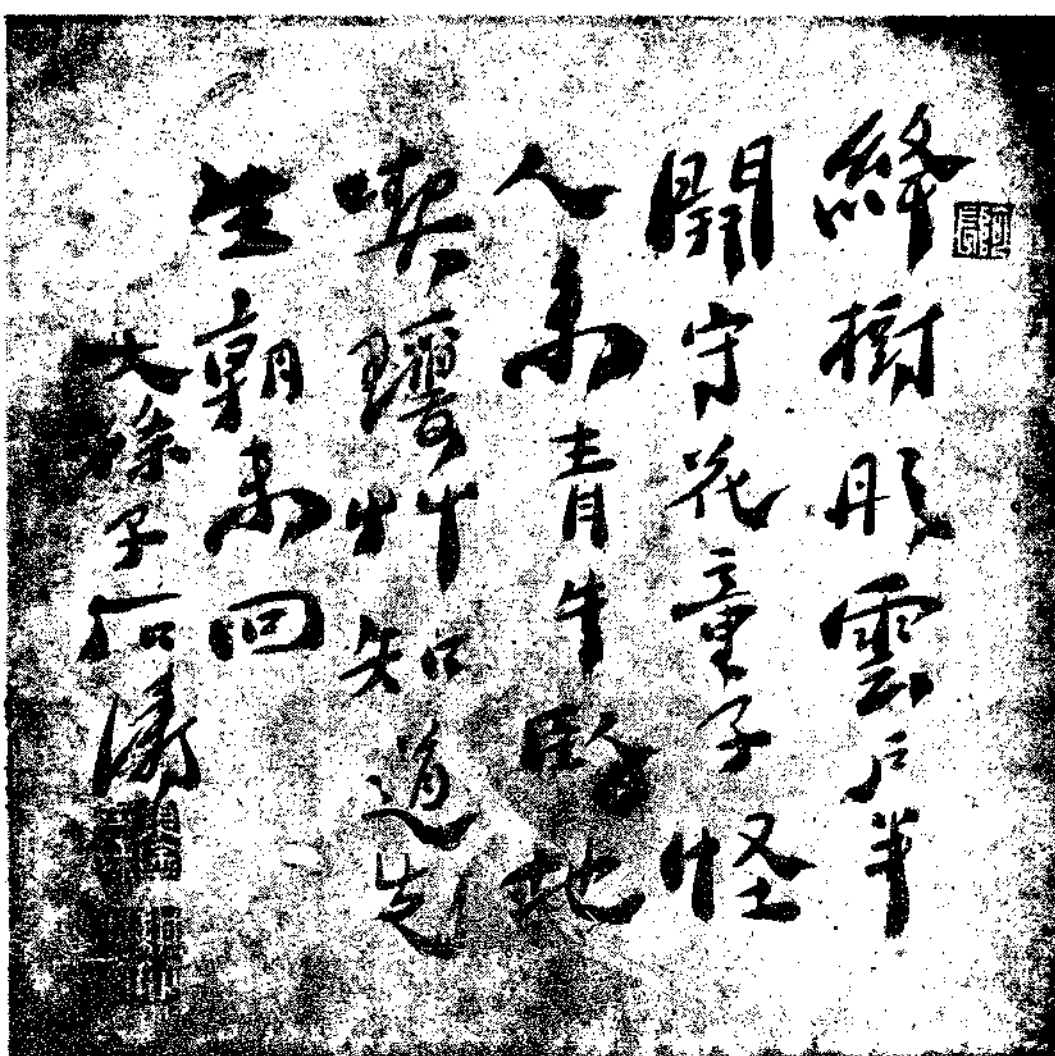 絳樹彤雲戶半
開守花童子怪
人來青牛臥地
喫瓊艸知道先
生朝未回
大滌子石濤